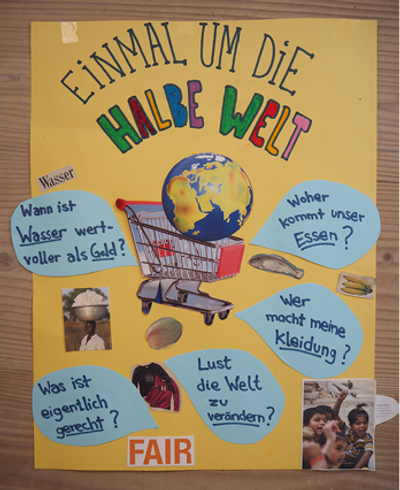 EiNMAL UM DiE
HALBE WELT
Wasser
Wann ist
Wasser wert-
voller als Gold?
Woher
kommt unser
Essen?
Wer
macht meine
Kleidung?
Lust
die Welt
zu
verändern?
Was ist
eigentlich
gerecht?
FAIR